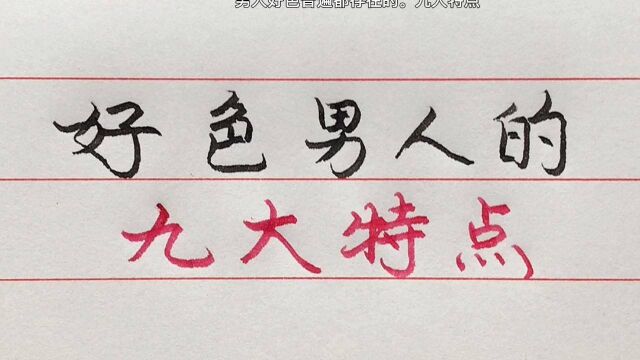 男人好色普遍都存在的。九大特点
好色男人的
九大特点